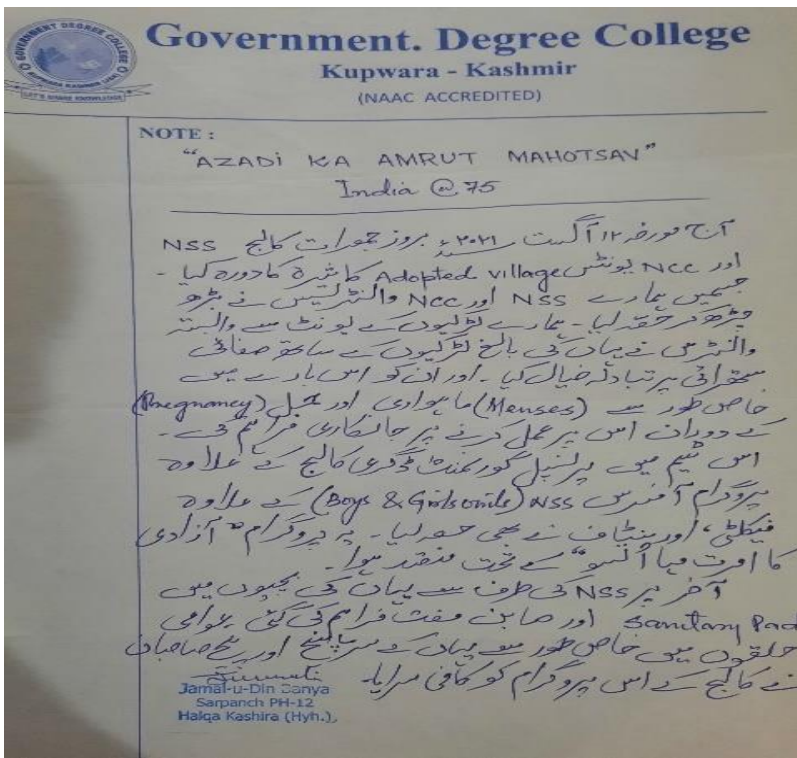 GOVERNMENT DEGREE COLLEGE
KUPWARA KASHMIR
Government. Degree College
Kupwara - Kashmir
(NAAC ACCREDITED)
NOTE :
"AZADI KA AMRUT MAHOTSAV"
India @ 75
آج مورخہ ۱۲ آگست ۲۰۲۱ء بروز جمعرات کالج NSS
اور NCC یونٹس Adopted village کاشیرہ کا دورہ کیا -
جسمیں ہمارے NSS اور NCC والنٹریس نے بڑھ
چڑھ کر حصّہ لیا - ہمارے لڑکیوں کے یونٹ سے وابستہ
والنٹرس نے یہاں کی بالغ لڑکیوں کے ساتھ صفائی
ستھرائی پر تبادلہ خیال کیا - اور ان کو اس بارے میں
خاص طور سے (Menses) ماہواری اور حمل (Pregnancy)
کے دوران اس پر عمل کرنے پر جانکاری فراہم کی -
اس ٹیم میں پرنسپل گورنمنٹ ڈگری کالج کے علاوہ
پروگرام آفسرس NSS (Boys & Girls units) کے علاوہ
فیکلٹی، اور سٹاف نے بھی حصہ لیا - یہ پروگرام "آزادی
کا امرت مہا آتسو" کے تحت منعقد ہوا -
آخر پر NSS کی طرف سے یہاں کی بچیوں میں
Sanitary Pad اور صابن مفت فراہم کی گئی - عوامی
حلقوں میں خاص طور سے یہاں کے سرپنچ اور پنچ صاحبان
نے کالج کے اس پروگرام کو کافی سراہا -
Jamal-u-Din Ganya
Sarpanch PH-12
Halqa Kashira (Hyh.)